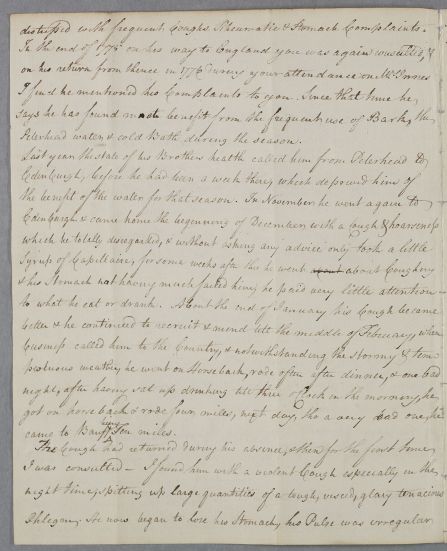 distressed with frequent Coughs Rheumatic & Stomach Complaints.
In the end of 1775 on his way to England you was again consulted, &
on his return from thence in 1776 during your attendance on Mr
I find he mentioned his Complaints to you. Since that time he
says he has found most benefit from the frequent use of Bark, the
Peterhead water, & cold Bath during the season.
Last year the state of his Brothers health called him from Peterhead to
Edinburgh, before he had been a week there, which deprived him of
the benefit of the water for that season. In November he went again to
Edinburgh & came home the beginning of December with a Cough & hoarseness
which he totally disregarded, & without asking any advice only took a little
Syrup of Capillaire, for some weeks after this he went about Coughing
& his Stomach not having much failed him, he paid very little attention
to what he eat or drank. About the end of January his Cough became
better & he continued to recruit & mend till the middle of February, when
business called him to the Country, & notwithstanding the Stormy & tem
pestuous weather, he went on Horseback, rode often after dinner, & one bad
night, after having sat up drinking till three o'Clock in the morning, he
got on horse back & rode four miles, next day, tho a very bad one, he
came to Banff Ten miles.
The Cough had returned during his absence, & then for the first time
I was consulted — I found him with a violent Cough especially in the
night time, spitting up large quantities of a tough, viscid, glary tenacious
Phlegm; He now began to lose his Stomach, his Pulse was irregular